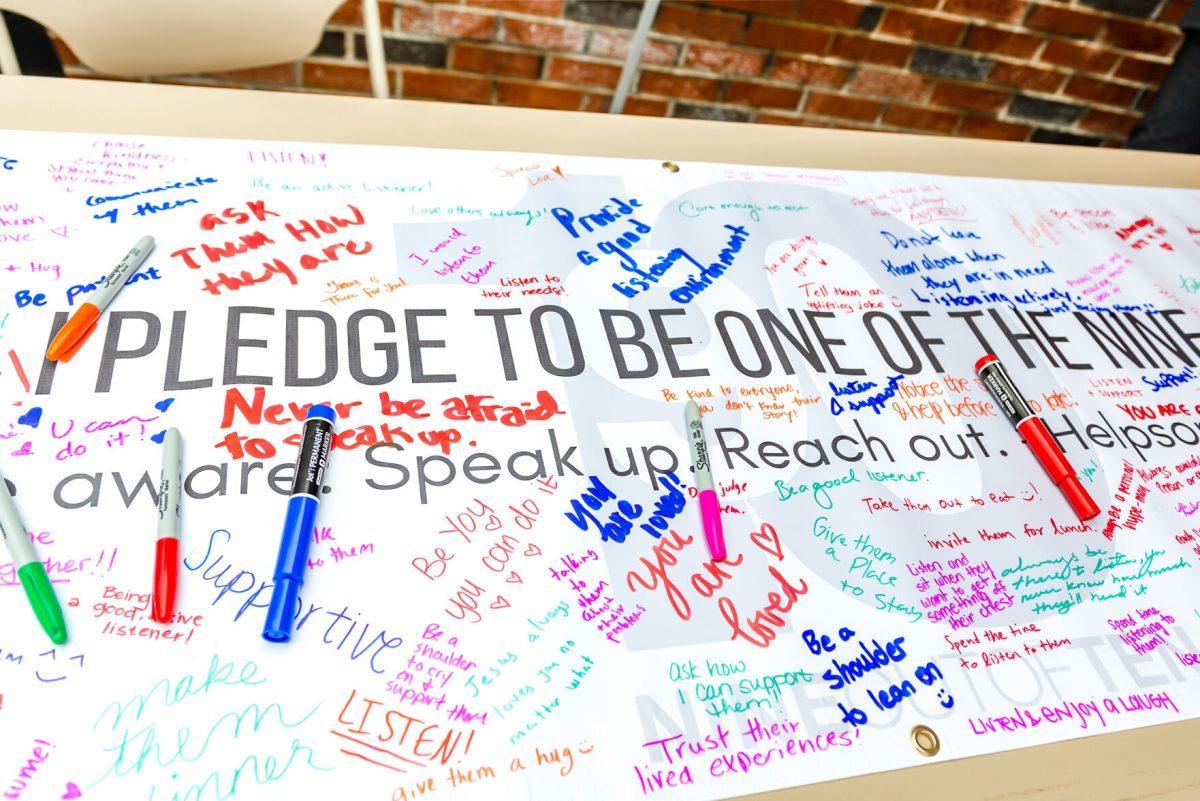 choose
kindness.
LISTEN!
Spread
Love
Be an active listener!
communicate
w/ them
ask
Them How
they are
Love others always!
I would
listen to
them
Provide
a good
listening
environment
Care enough to act
Do not leave
them alone when
they are in need
Listening actively
+ Hug
There for you!
Listen to
their needs!
Tell them an
uplifting joke
I PLEDGE TO BE ONE OF THE NINE
Never be afraid
to speak up.
Be kind to everyone,
you don't know their
story!
Listen
& support
Notice the
& help before
late!
LISTEN
+ SUPPORT
Support!
YOU ARE
U can
do it!
aware. Speak up. Reach out. Helpso
you
are
loved!
judge
them.
Be a good listener.
Take them out to eat :)!
Be You
you can do it
You
are
loved
Give them
a Place
to Stay
invite them for lunch.
Listen and
sit when they
want to get
something off
their chest
always be
there to listen, you
never know how much
they'll need it
Supportive
to them
Being a
good
listener!
talking
to them
about
their
problems
Be a
shoulder
to cry
on &
support them
Jesus always
loves you no
matter what
ask how
I can support
them!
Be a
shoulder
to lean on
Spend the time
to listen to them
Spend time
listening to
them!
make
them
dinner
LISTEN!
give them a hug
Trust their
lived experiences!
LISTEN & ENJOY a LAUGH
NINE OUT OF TEN